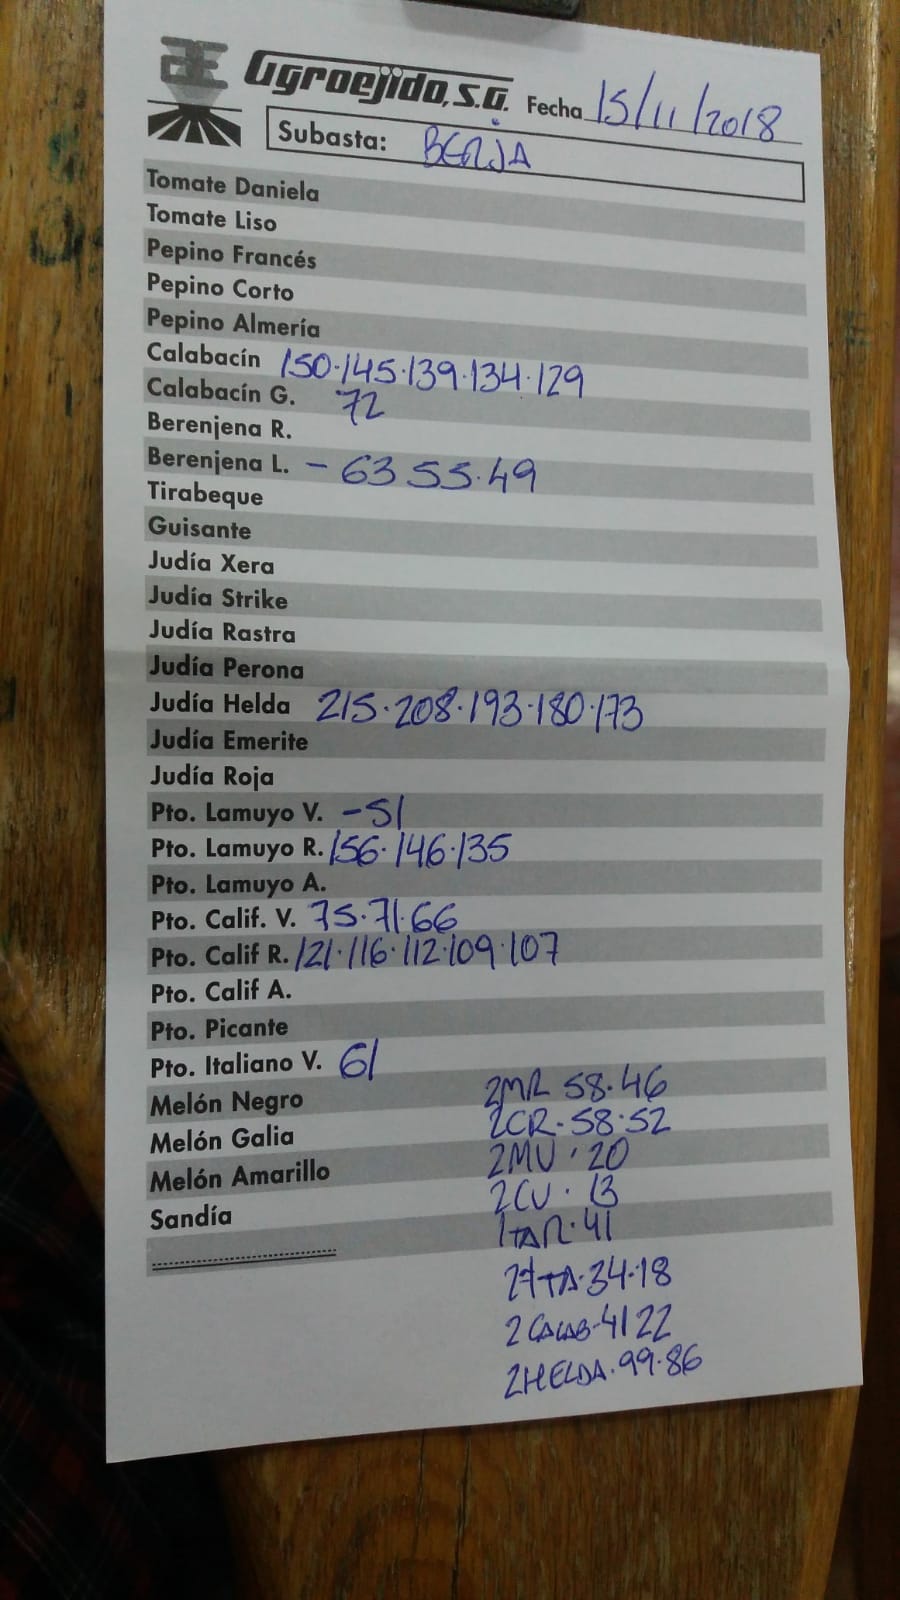 Agroejido, S.A. Fecha 15/11/2018
Subasta: BERJA
Tomate Daniela
Tomate Liso
Pepino Francés
Pepino Corto
Pepino Almería
Calabacín 150.145.139.134.129
Calabacín G. 72
Berenjena R.
Berenjena L. - 63 55.49
Tirabeque
Guisante
Judía Xera
Judía Strike
Judía Rastra
Judía Perona
Judía Helda 215.208.193.180.173
Judía Emerite
Judía Roja
Pto. Lamuyo V. -51
Pto. Lamuyo R. 156.146.135
Pto. Lamuyo A.
Pto. Calif. V. 75.71.66
Pto. Calif R. 121.116.112.109.107
Pto. Calif A.
Pto. Picante
Pto. Italiano V. 61
Melón Negro 2MR 58.46
Melón Galia 2CR-58.52
Melón Amarillo 2MV.20
Sandía 2CV.13
1TAR.41
34.18
2CALAB-41 22
2HELDA.99.86